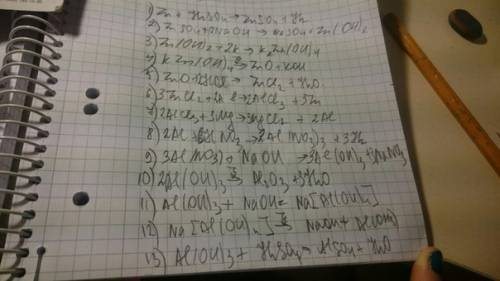 1) Zn + H2SO4 → ZnSO4 + H2
2) ZnSO4 + NaOH → Zn(OH)2
3) Zn(OH)2 + 2K → K2Zn(OH)4
4) K Zn(OH) → ZnO + KOH
5) ZnO + 2HCl → ZnCl2 + H2O
6) 3ZnCl2 + 2Al → 2AlCl3 + 3Zn
7) 2AlCl3 + 3Mg → 3MgCl2 + 2Al
8) 2Al + 6HNO3 → 2Al(NO3)3 + 3H2
9) 3Al(NO3) + NaOH → 3Al(OH)3 + 3NaNO3
10) 2Al(OH)3 → Al2O3 + 3H2O
11) Al(OH)3 + NaOH = Na[Al(OH)4]
12) Na[Al(OH)4] → NaOH + Al(OH)3
13) Al(OH)3 + H2SO4 → AlSO4 + H2O